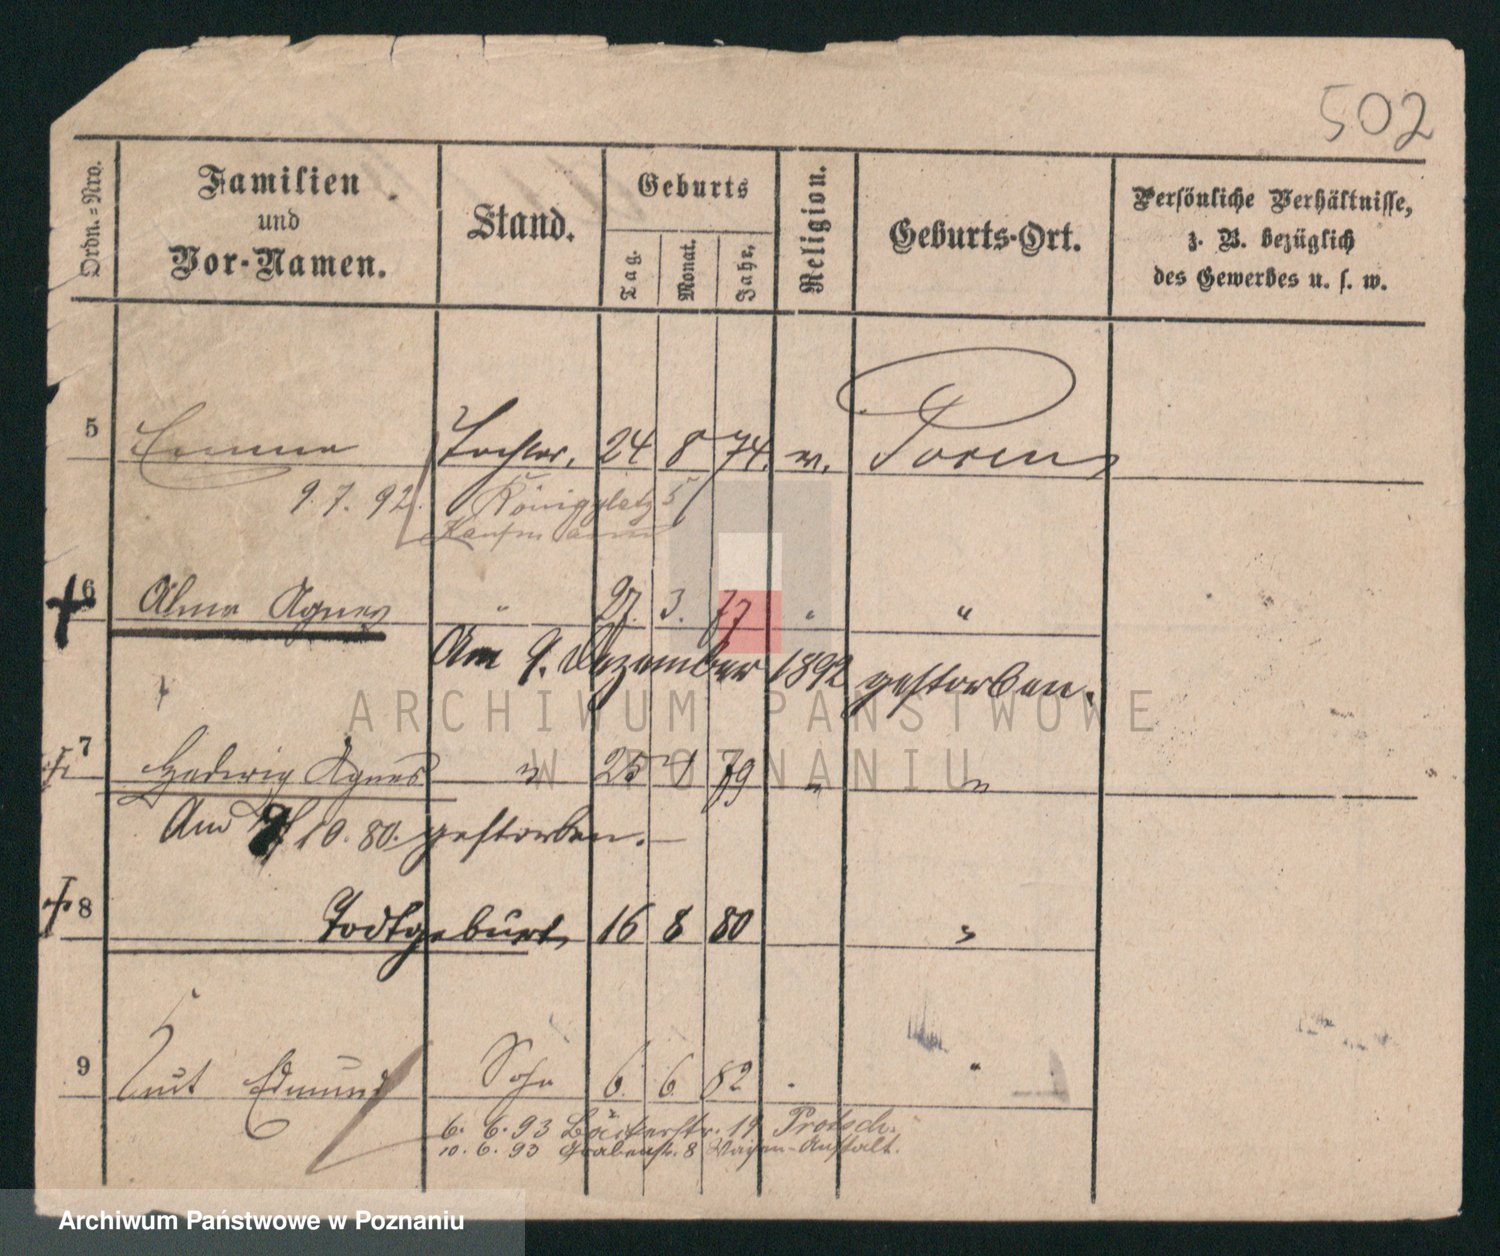 502
Ordn.=Nro.
Familien
und
Vor-Namen.
Stand.
Geburts
Tag.
Monat.
Jahr.
Religion.
Geburts-Ort.
Persönliche Verhältnisse,
z. B. bezüglich
des Gewerbes u. s. w.
5 Emma Tochter. 24 8 74. ev. Posen
9. 7. 92. Königsplatz 5
Kaufmann
6 Alma Agnes " 27. 3. 77 " "
Am 9. Dezember 1892 gestorben.
7 Hedwig Agnes " 25 79 " "
Am 10. 80. gestorben.
8 Todtgeburt 16 8 80 "
9 Curt Edmund Sohn 6. 6. 82 . "
6. 6. 93 Bäckerstr. 19 Protsch.
10. 6. 93 Grabenstr. 8 Waisen-Anstalt.
ARCHIWUM PAŃSTWOWE
W POZNANIU
Archiwum Państwowe w Poznaniu